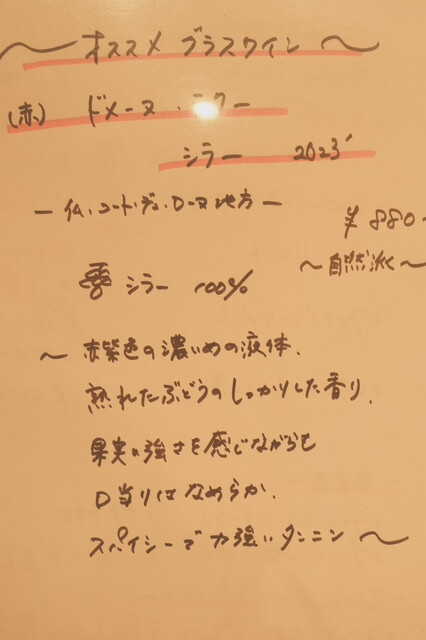 〜 オススメ グラスワイン 〜
(赤) ドメーヌ・ラクー
シラー 2023'
ー 仏、コート・デュ・ローヌ地方 ー
¥880-
〜自然派〜
シラー 100%
〜 赤紫色の濃いめの液体、
熟れたぶどうのしっかりした香り、
果実の強さを感じながらも
口当りはなめらか、
スパイシーで力強いタンニン 〜